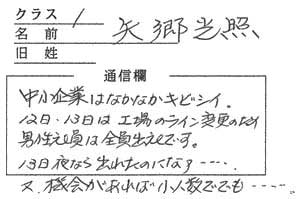 クラス 1
名前 矢郷光照
旧姓
通信欄
中小企業はなかなかキビシイ。
12日・13日は工場のライン変更のため
男性社員は全員出社です。
13日夜なら出れたのになぁ‥‥。
又、機会があれば小人数ででも‥‥‥。